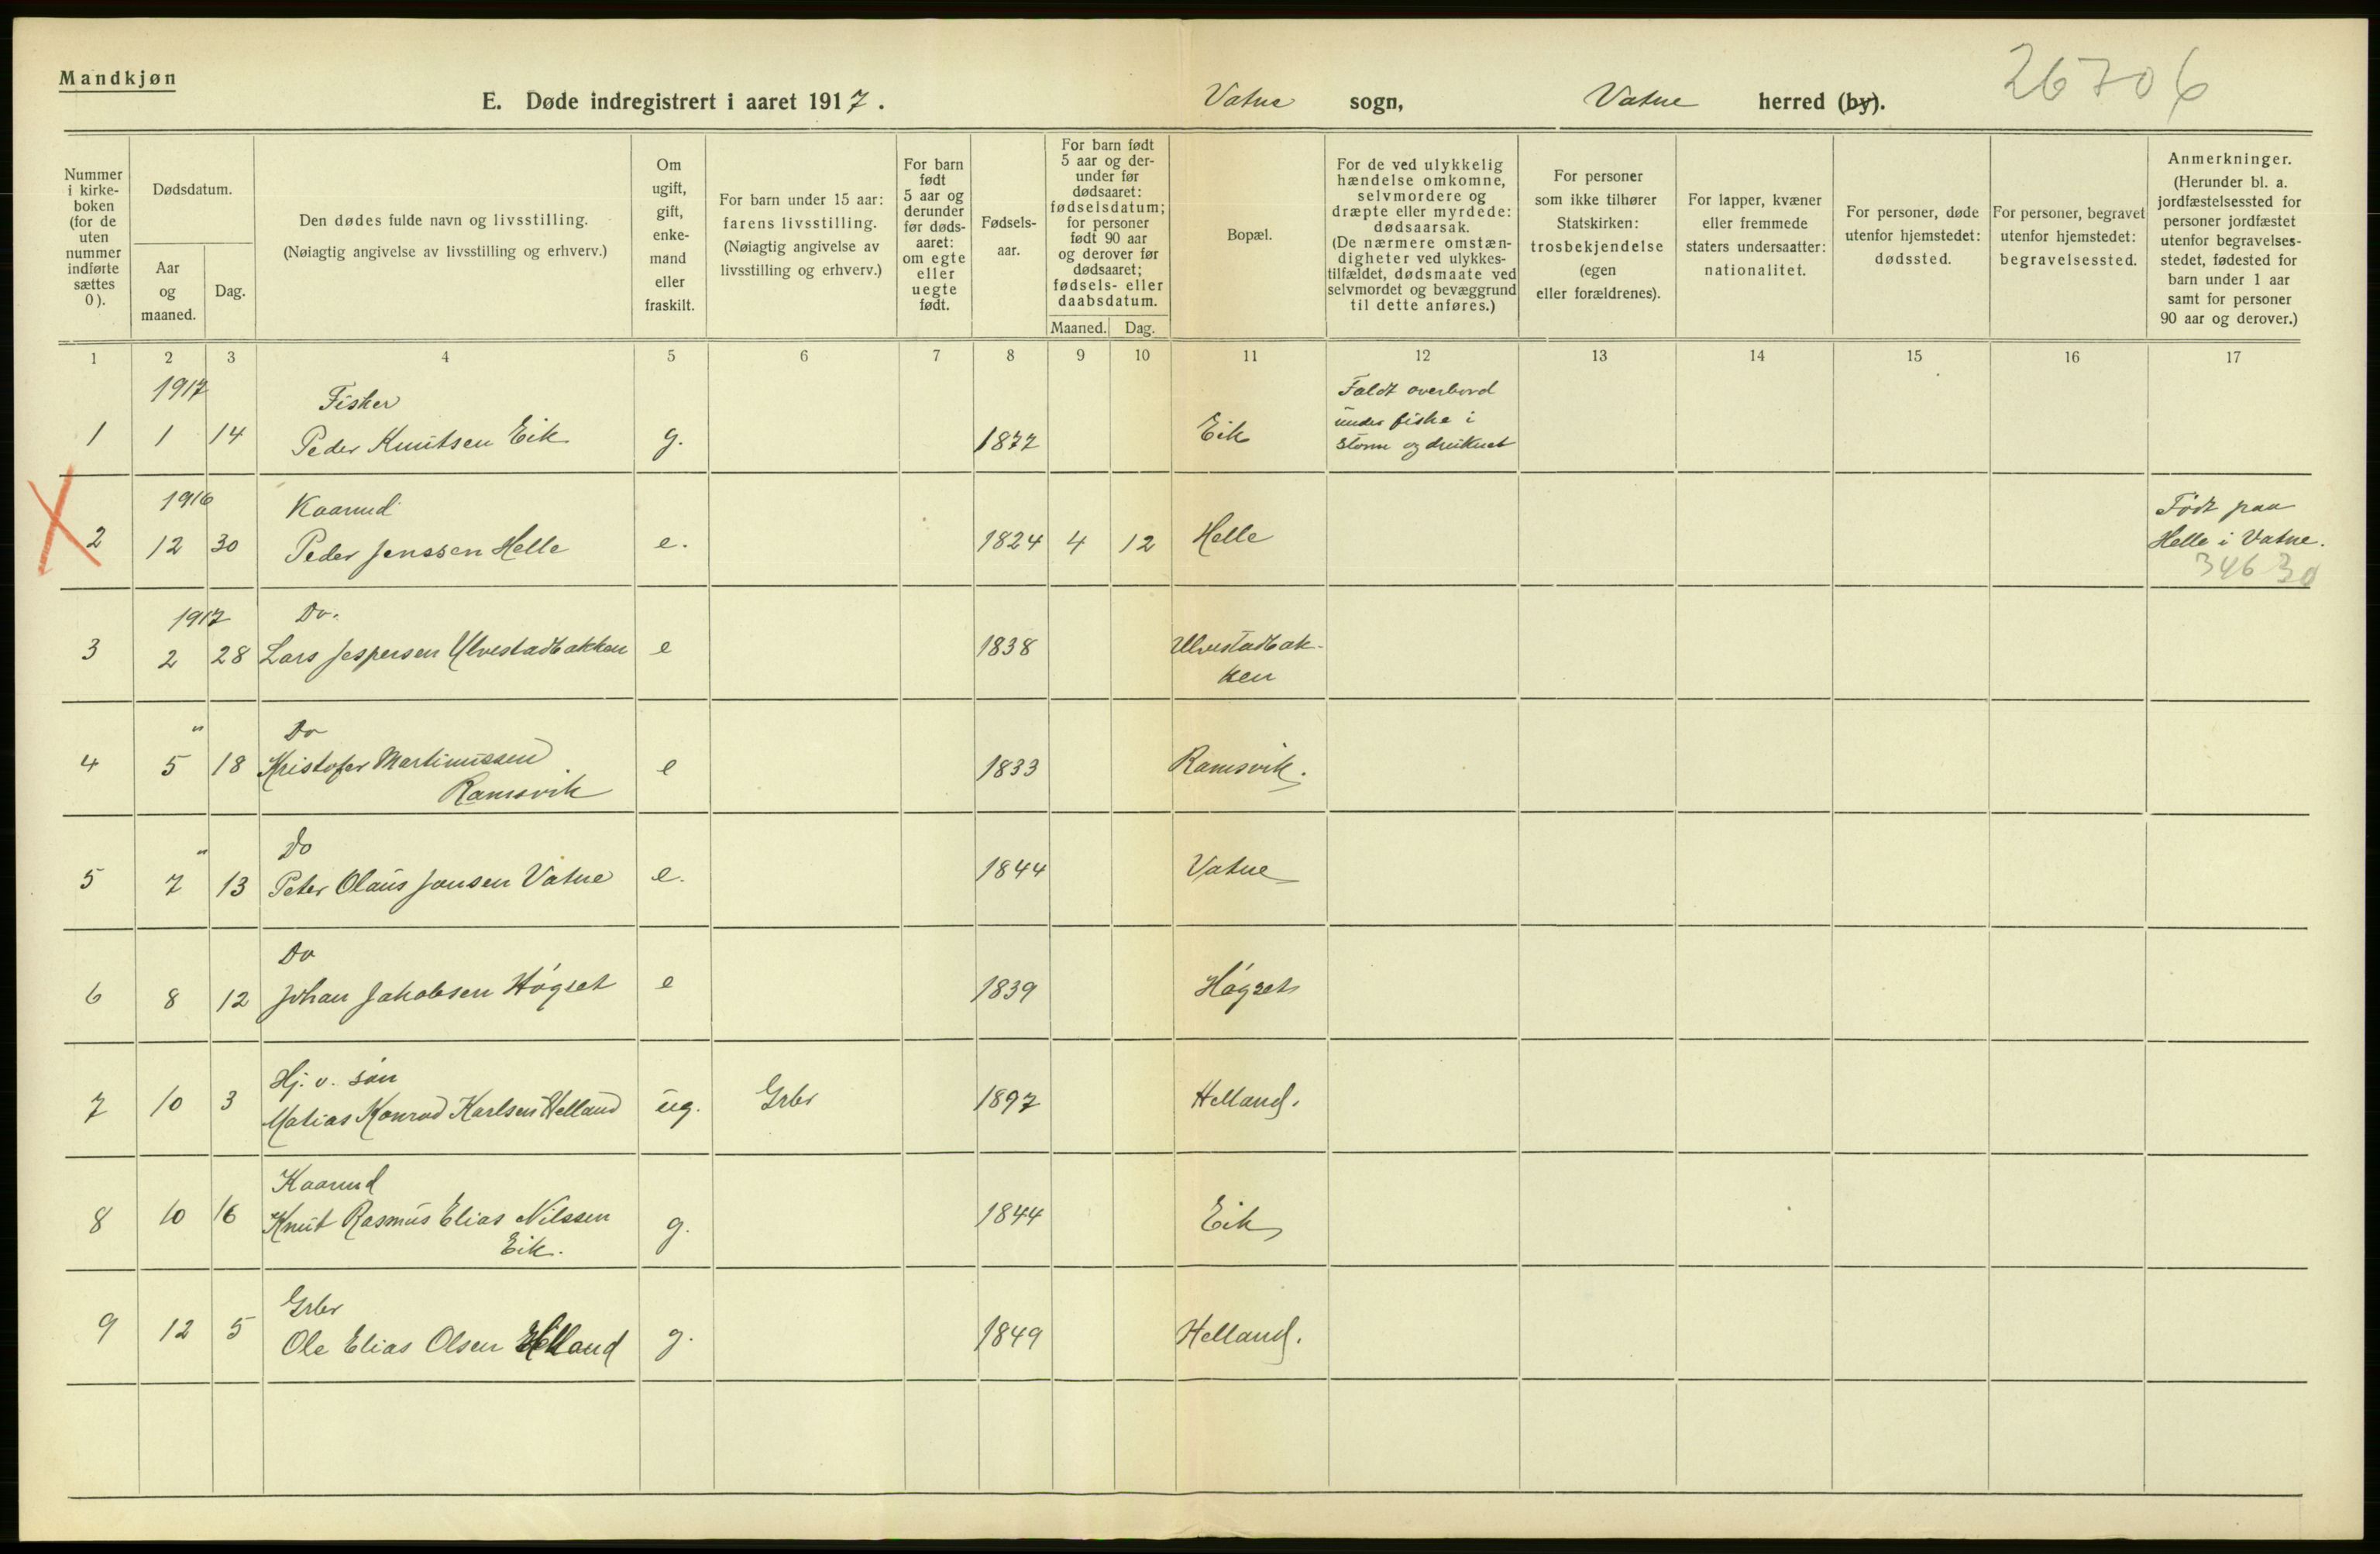 Mandkjøn
E. Døde indregistrert i aaret 1917. Vatne sogn, Vatne herred (by).
26706
Nummer i kirke-boken (for de uten nummer indførte sættes 0).
Dødsdatum.
Aar og maaned.
Dag.
Den dødes fulde navn og livsstilling.
(Nøiagtig angivelse av livsstilling og erhverv.)
Om ugift, gift, enke-mand eller fraskilt.
For barn under 15 aar: farens livsstilling.
(Nøiagtig angivelse av livsstilling og erhverv.)
For barn født 5 aar og derunder før døds-aaret: om egte eller uegte født.
Fødsels-aar.
For barn født 5 aar og der-under før dødsaaret: fødselsdatum; for personer født 90 aar og derover før dødsaaret; fødsels- eller daabsdatum.
Maaned. Dag.
Bopæl.
For de ved ulykkelig hændelse omkomne, selvmordere og dræpte eller myrdede: dødsaarsak.
(De nærmere omstæn-digheter ved ulykkes-tilfældet, dødsmaate ved selvmordet og bevæggrund til dette anføres.)
For personer som ikke tilhører Statskirken: trosbekjendelse (egen eller forældrenes).
For lapper, kvæner eller fremmede staters undersaatter: nationalitet.
For personer, døde utenfor hjemstedet: dødssted.
For personer, begravet utenfor hjemstedet: begravelsessted.
Anmerkninger.
(Herunder bl. a. jordfæstelsessted for personer jordfæstet utenfor begravelses-stedet, fødested for barn under 1 aar samt for personer 90 aar og derover.)
1 2 3 4 5 6 7 8 9 10 11 12 13 14 15 16 17
1917 Fisker Faldt overbord
under fiske i
1 1 14 Peder Knutsen Eik g. 1877 Eik storm og druknet
1916 Kaarmd Født paa
2 12 30 Peder Jenssen Helle e. 1824 4 12 Helle Helle i Vatne.
34630
1917 Do.
3 2 28 Lars Jespersen Ulvestadbakken e 1838 Ulvestadbak-
ken
" Do
4 5 18 Kristofer Martinussen e 1833 Ramsvik.
Ramsvik
" Do
5 7 13 Peter Olaus Jonsen Vatne e. 1844 Vatne
Do
6 8 12 Johan Jakobsen Høgset e 1839 Høgset
Hj. v. søn
7 10 3 Matias Konrad Karlsen Helland ug. Grbr 1897 Helland.
Kaarmd
8 10 16 Knut Rasmus Elias Nilssen g. 1844 Eik
Eik.
Grbr
9 12 5 Ole Elias Olsen Helland g. 1849 Helland.